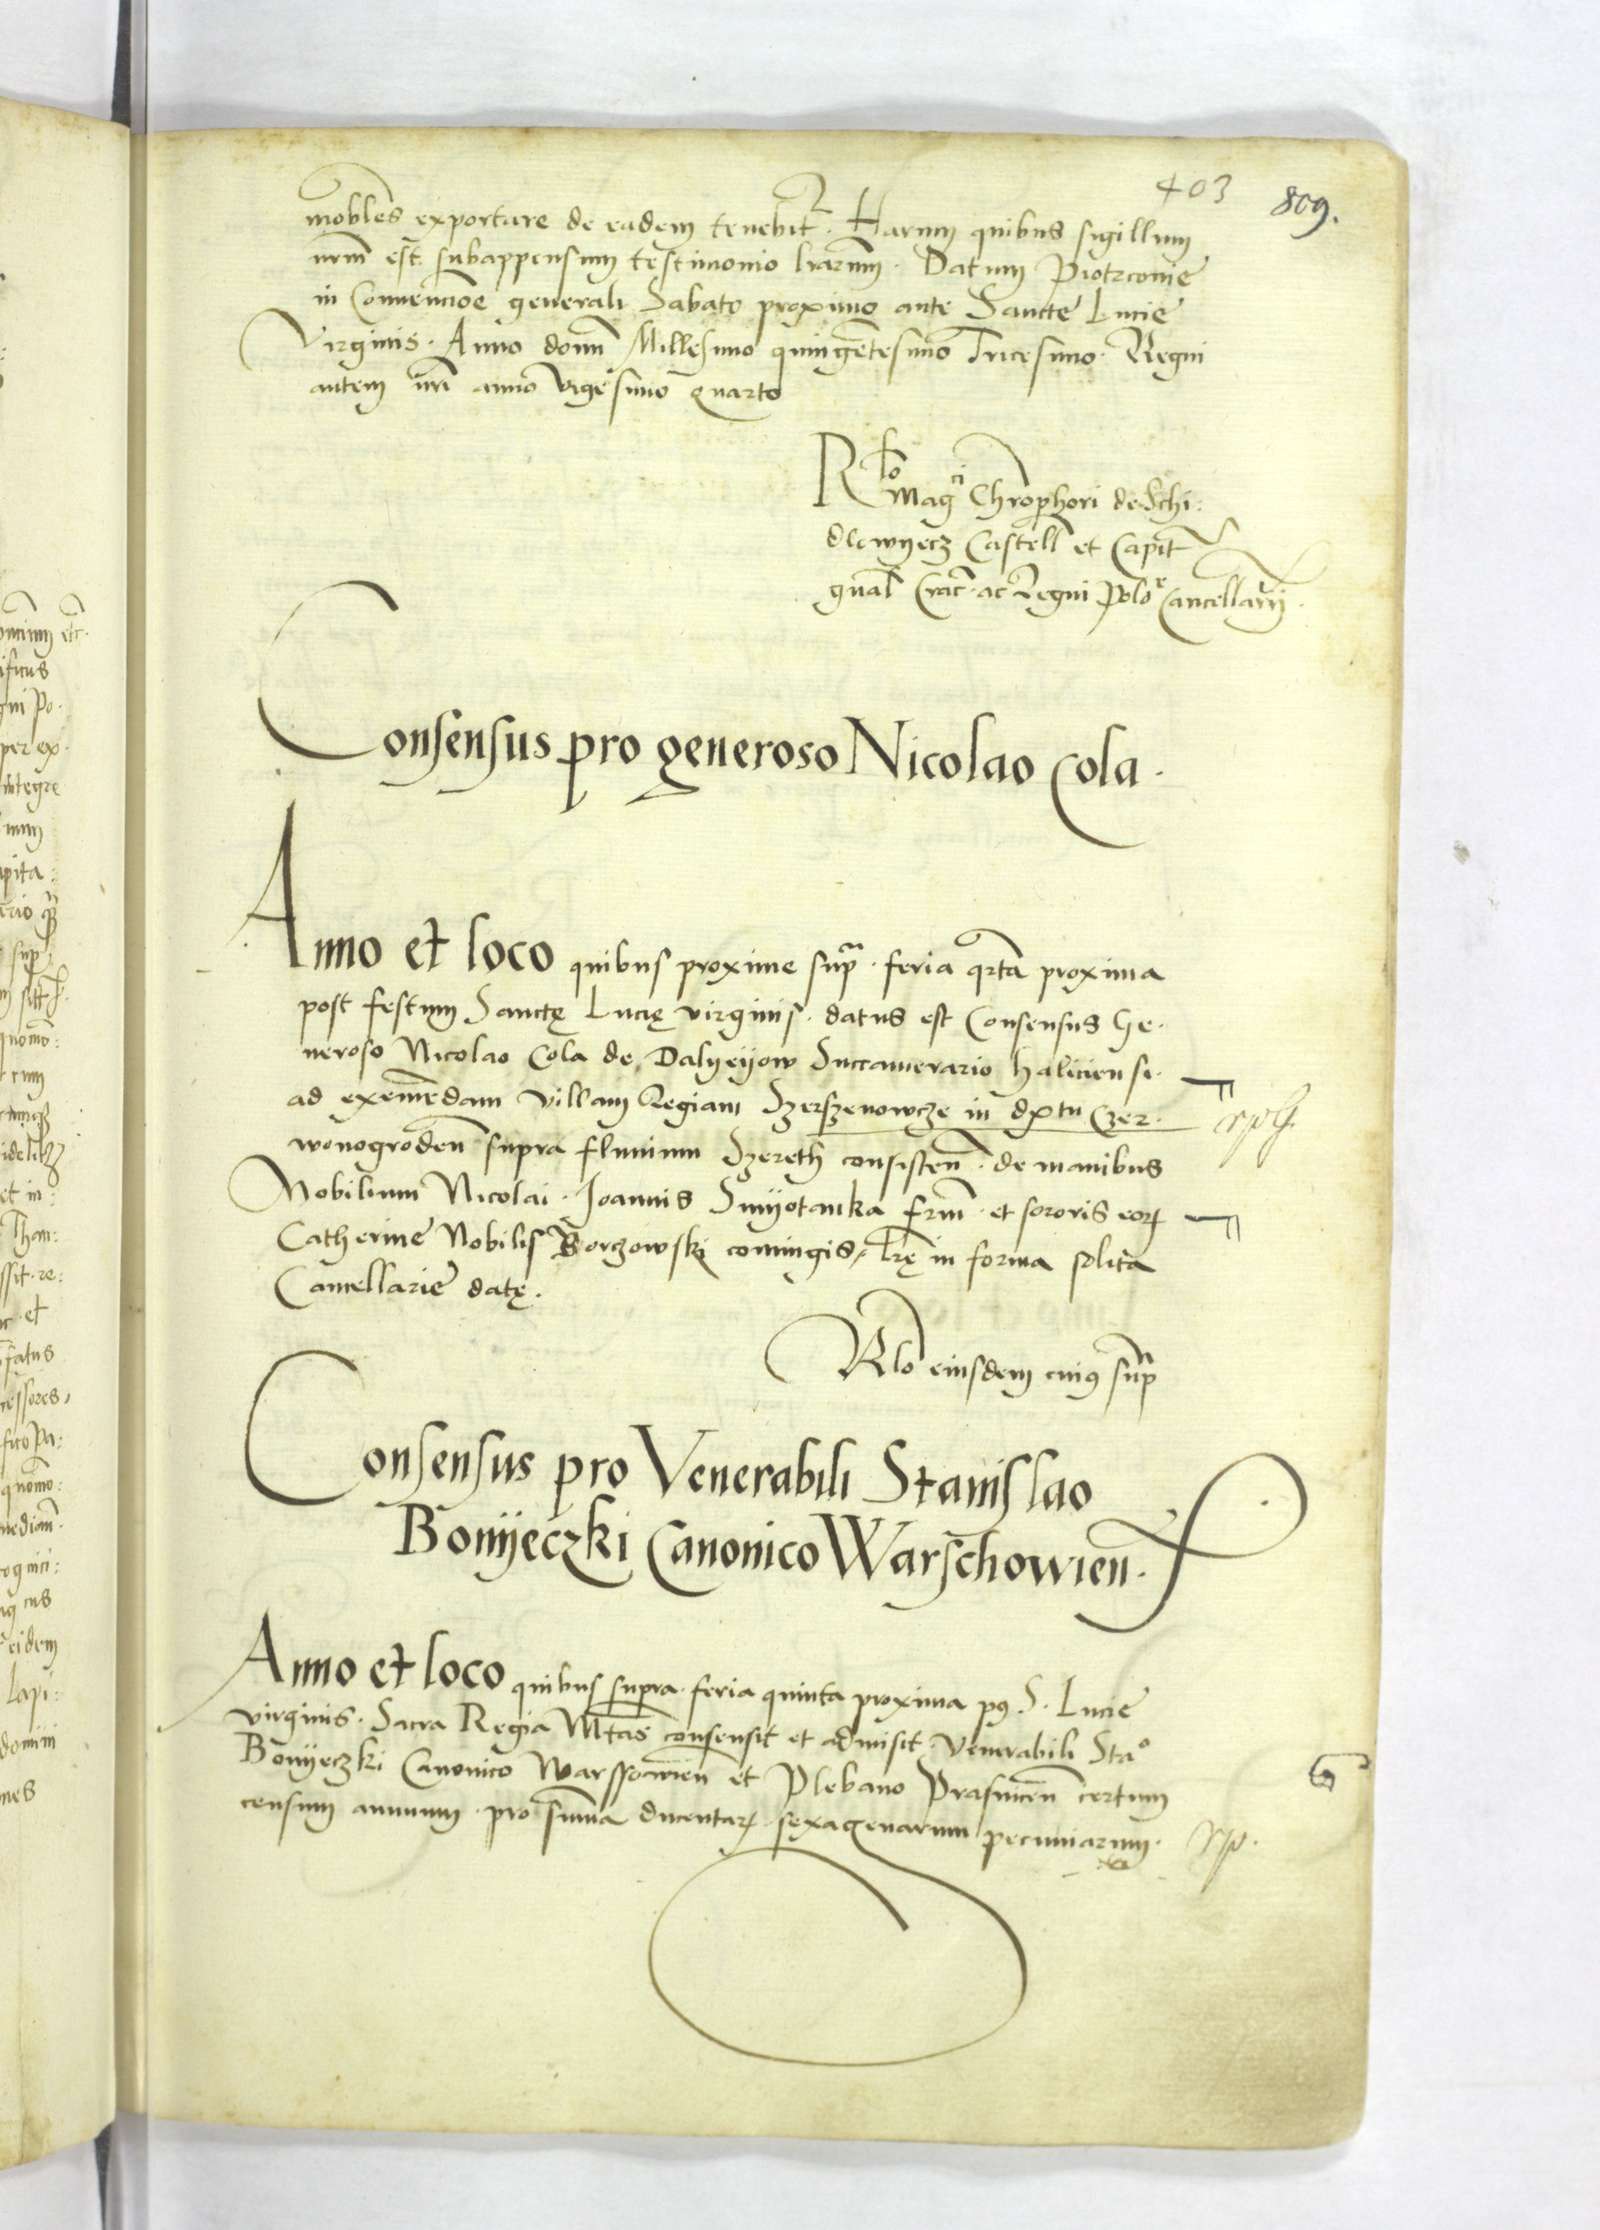 403 809.
mobiles exportare de eadem tenebit^r. Harum quibus sigillum
nrm̄ est subappensum testimonio lrarum̄. Datum Piotrcovie
in Conuencioe generali Sabato proximo ante Sancte Lucie
Virginis. Anno domī Millesimo quingētesimo Tricesimo. Regni
autem nrī anno vigesimo quarto
R^lo Mag^ci Chrophori de Schi:
dlowyecz Castell̄ et Capit̄
gnāl Crac̄. ac Regni Polo^e Cancellarij.
Consensus pro generoso Nicolao Cola.
Anno et loco quibus proxime sup^a. feria qrta proxima
post festum Sanctę Lucię virginis. datus est Consensus Ge.
neroso Nicolao Cola de Dalyeyow Succamerario haliciensi.
ad exemēdam villam Regiam Szerszenowcze in dxtu Czer.
wonogroden̄ supra fluuium Szereth consisten̄. de manibus
Nobilium Nicolai. Joannis Smyotanka frm̄. et sororis eorꝝ
Catherine Nobilis Borczowski coniugis, lr̄ę in forma solita
Cancellarie datę.
Rlō eiusdem cuiꝯ sup^a
Consensus pro Venerabili Stanislao
Bonyeczki Canonico Warschowien.
Anno et loco quibus supra. feria quinta proxima pꝯ S. Lucie
virginis. Sacra Regia M̄tas consensit et admisit Venerabili Sta^o
Bonyeczki Canonico Warssowien̄ et Plebano Prasnicen̄ certum
censum annuum. pro sum̄a ducentarꝝ sexagenarum pecuniarum.